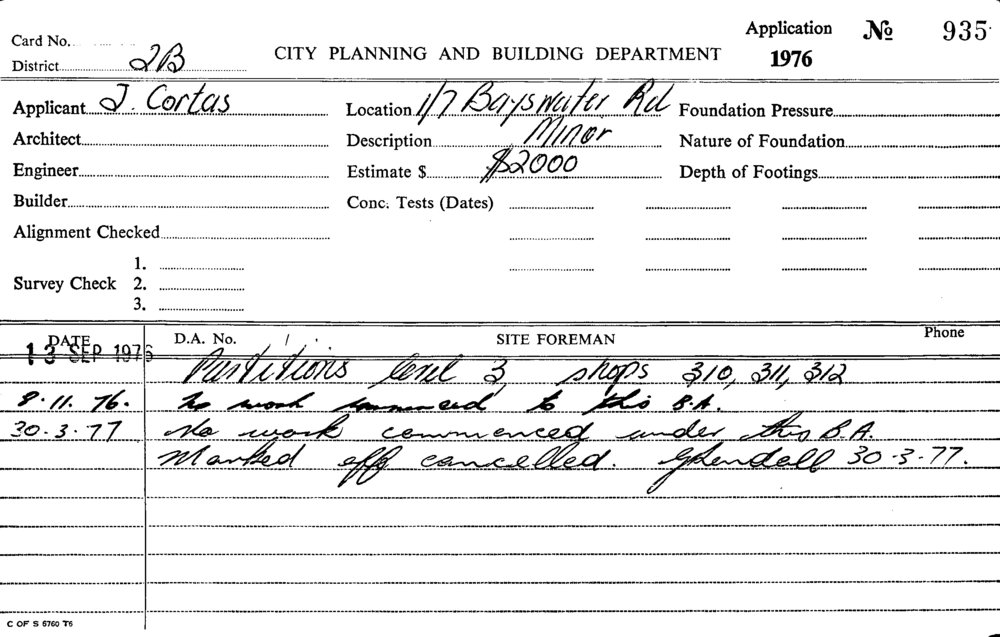 Card No. Application No 935
District 2B CITY PLANNING AND BUILDING DEPARTMENT 1976
Applicant J. Cortas Location 1/7 Bayswater Rd Foundation Pressure
Architect Description Minor Nature of Foundation
Engineer Estimate $ $2000 Depth of Footings
Builder Conc. Tests (Dates)
Alignment Checked
1.
Survey Check 2.
3.
DATE D.A. No. SITE FOREMAN Phone
13 SEP 1976 Partitions level 3, shops 310, 311, 312
8.11.76. No work commenced to this B.A.
30.3.77 No work commenced under this B.A.
Marked off cancelled. 30.3.77.
C OF S 6760 T6